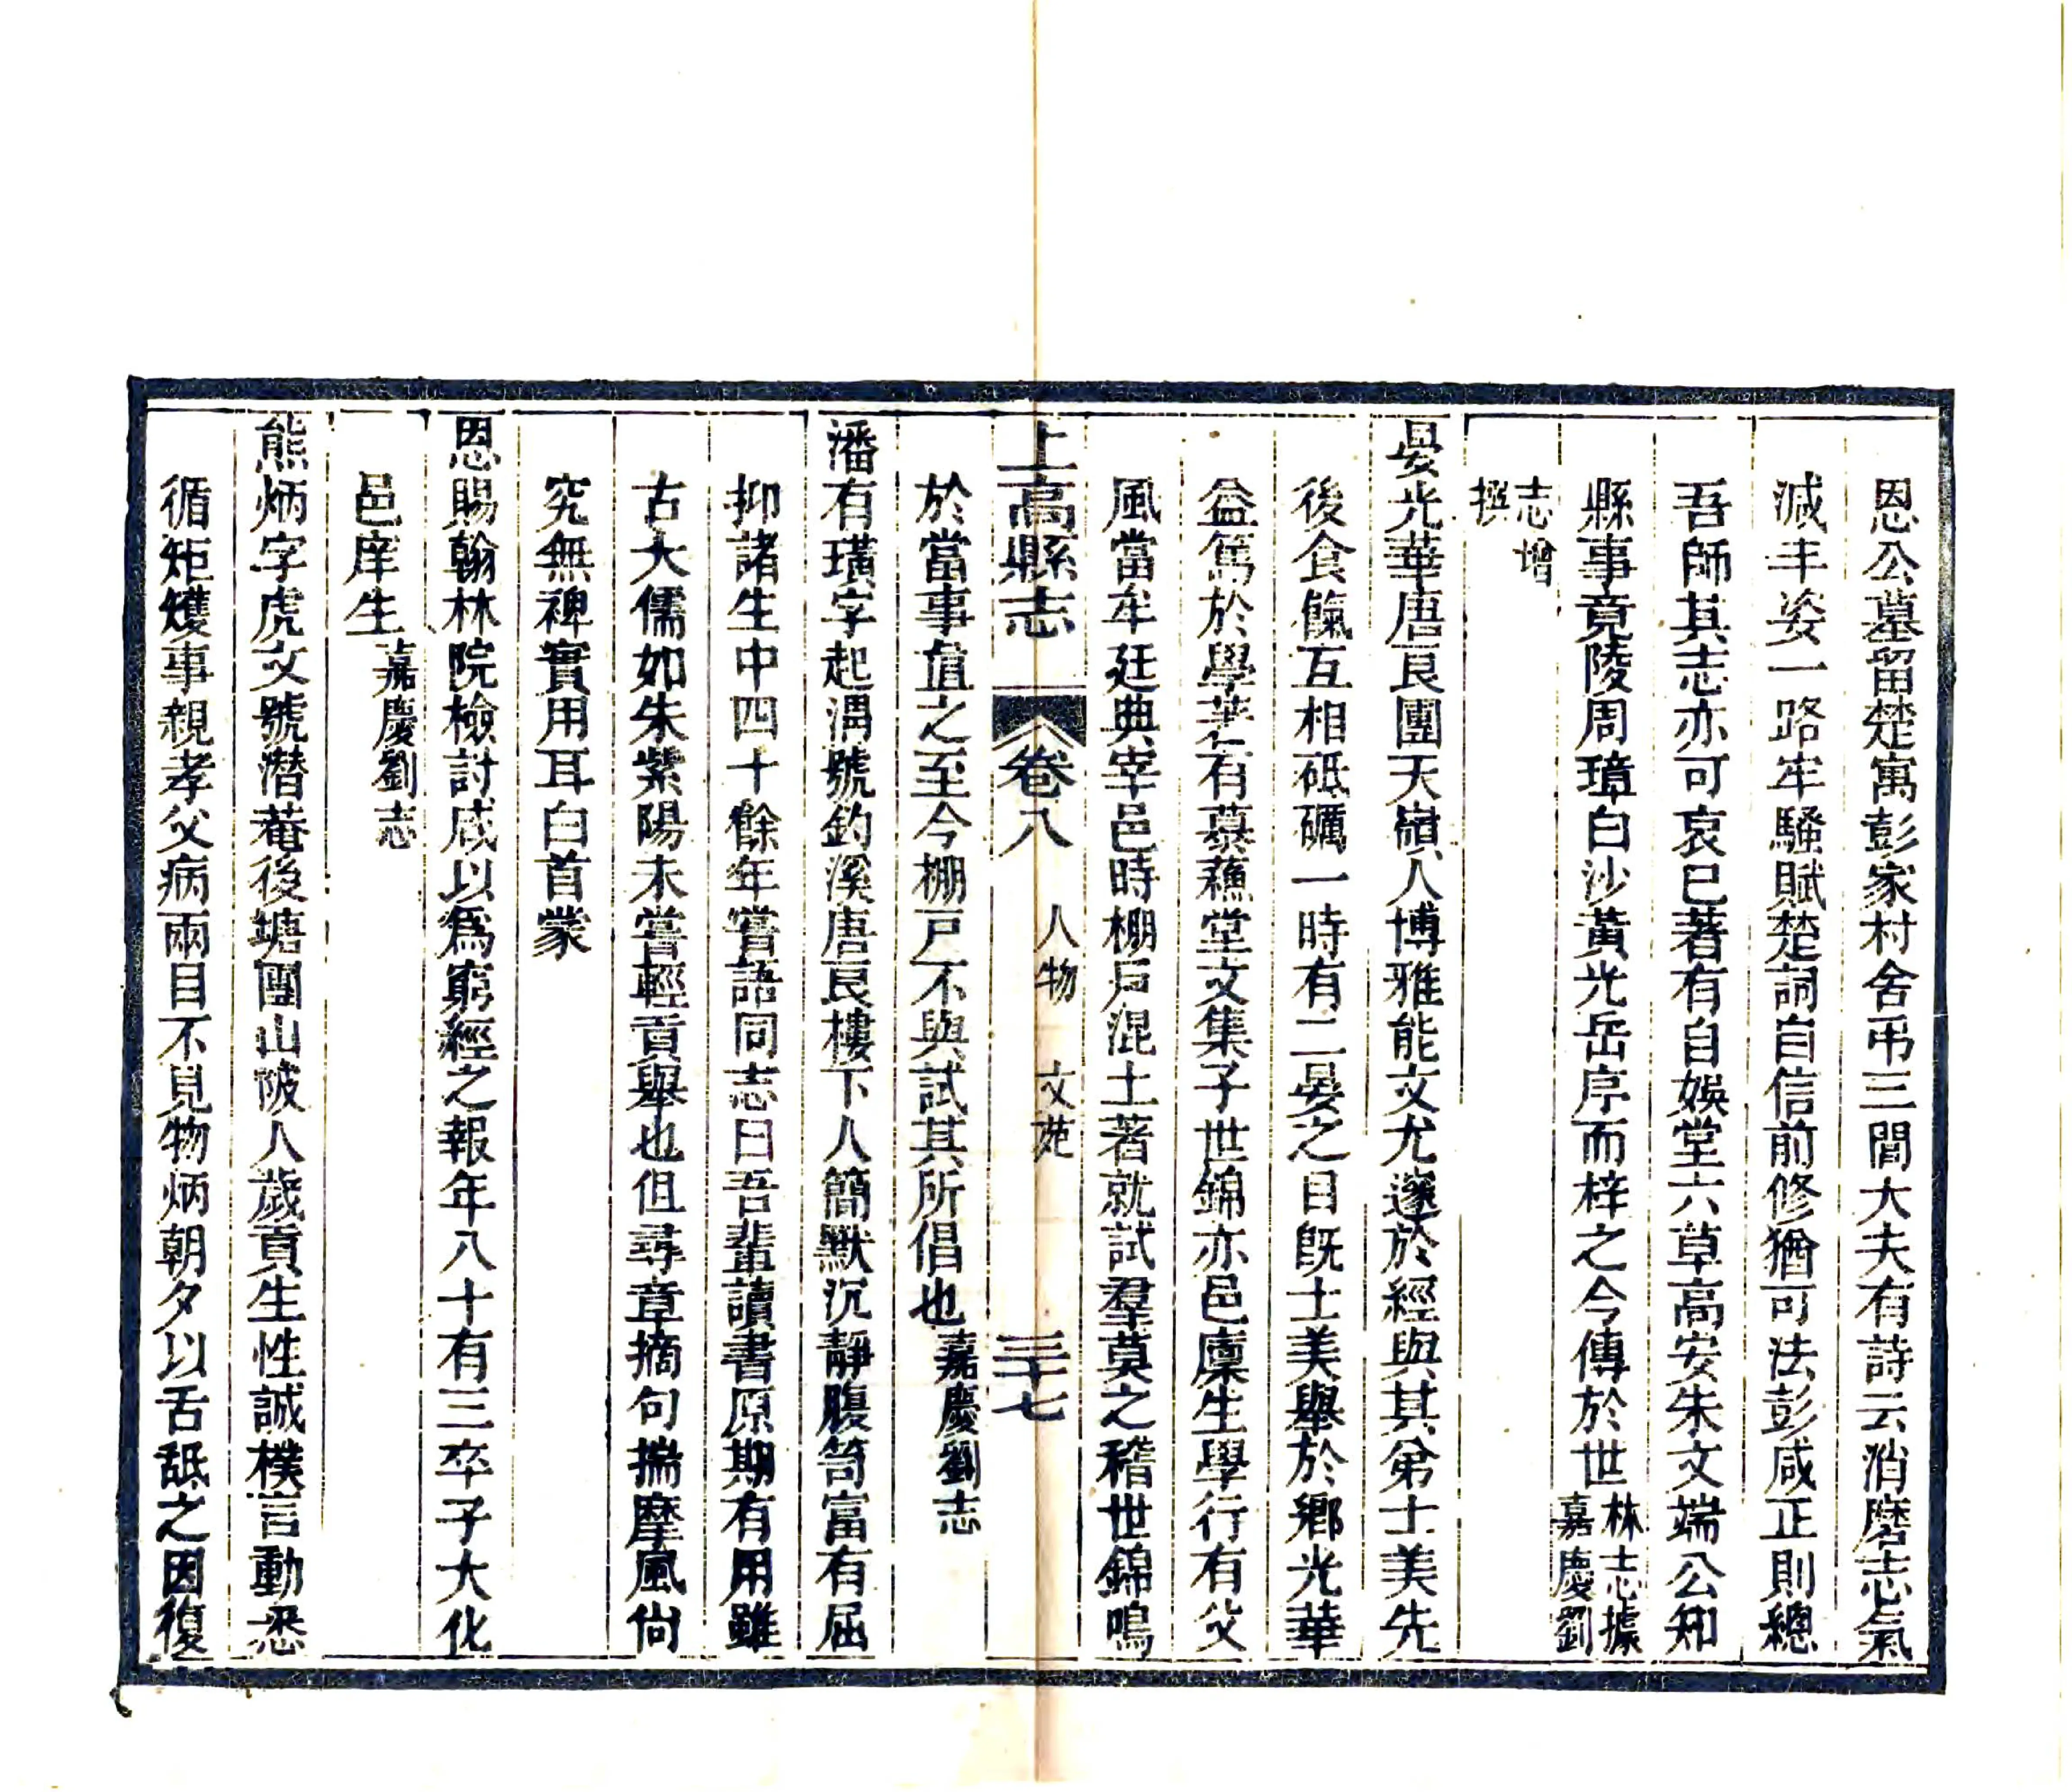 恩公墓留楚寓彭家村舍弔三閭大夫有詩云消磨志氣
減丰姿一路牢騷賦楚詞自信前修猶可法彭咸正則總
吾師其志亦可哀已著有自娛堂六草高安朱文端公知
縣事竟陵周璋白沙黃光岳序而梓之今傳於世林志據嘉慶劉
志增撰
晏光華唐良團天嶺人博雅能文尤邃於經與其弟士美先
後食餼互相砥礪一時有二晏之目旣士美舉於鄉光華
益篤於學著有慕蘓堂文集子世錦亦邑廩生學行有父
風當牟廷典宰邑時棚戶混土著就試羣莫之稽世錦鳴
於當事值之至今棚戶不與試其所倡也嘉慶劉志
上高縣志 卷八 人物 文苑 三十七
潘有璜字起渭號釣溪唐良樓下人簡默沉靜腹笥富有屈
抑諸生中四十餘年嘗語同志曰吾輩讀書原期有用雖
古大儒如朱紫陽未嘗輕貢舉也但尋章摘句揣摩風尙
究無裨實用耳白首蒙
恩賜翰林院檢討咸以爲窮經之報年八十有三卒子大化
邑庠生嘉慶劉志
熊炳字虎文號潛菴後塘團山陂人歲貢生性誠樸言動悉
循矩矱事親孝父病兩目不見物炳朝夕以舌舐之因復